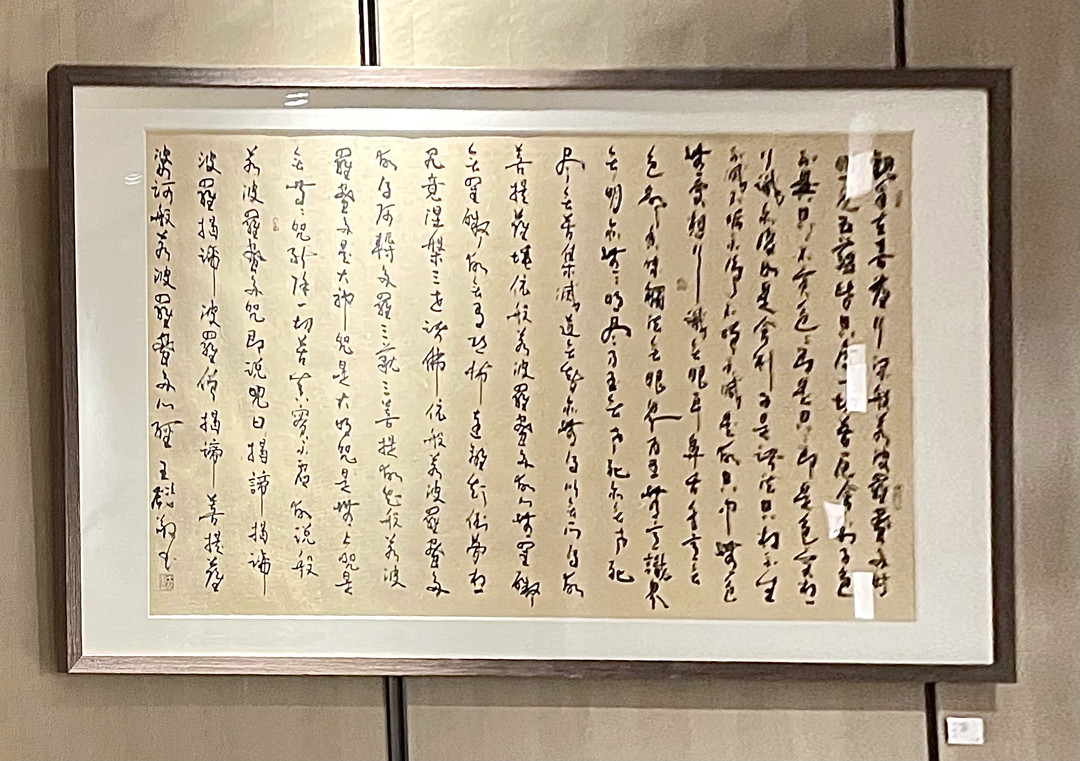 觀自在菩薩行深般若波羅蜜多時
照見五蘊皆空度一切苦厄舍利子色
不異空空不異色色即是空空即是色受想
行識亦復如是舍利子是諸法空相不生
不滅不垢不淨不增不減是故空中無色
無受想行識無眼耳鼻舌身意無
色聲香味觸法無眼界乃至無意識界
無明亦無無明盡乃至無老死亦無老死
盡無苦集滅道無智亦無得以無所得故
菩提薩埵依般若波羅蜜多故心無罣礙
無罣礙故無有恐怖遠離顛倒夢想
究竟涅槃三世諸佛依般若波羅蜜多
故得阿耨多羅三藐三菩提故知般若波
羅蜜多是大神咒是大明咒是無上咒是
無等等咒能除一切苦真實不虛故說般
若波羅蜜多咒即說咒曰揭諦揭諦
波羅揭諦波羅僧揭諦菩提薩
婆訶般若波羅蜜多心經 王